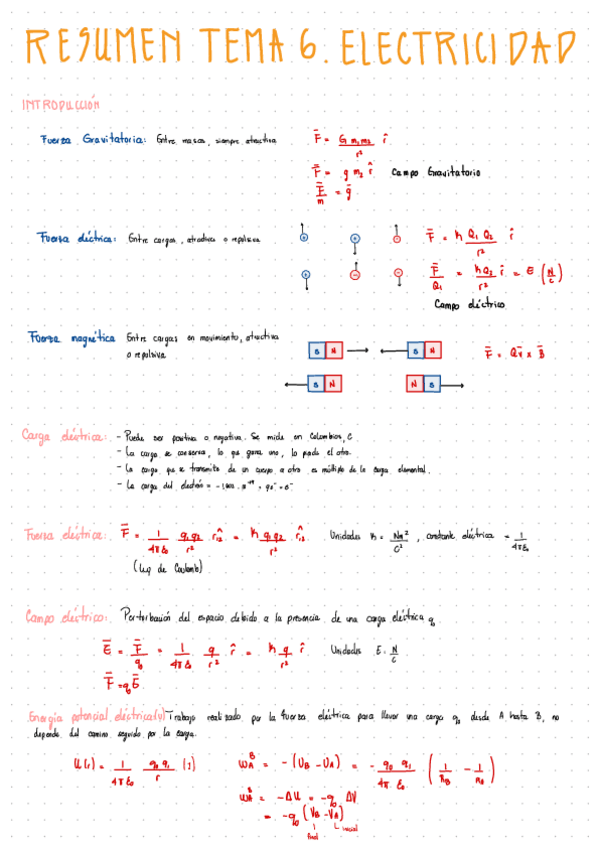 RESUMEN TEMA 6. ELECTRICIDAD
INTRODUCCIÓN
Fuerza Gravitatoria: Entre masas, siempre atractiva
F̄ = G m₁m₂ / r² r̂
F̄ = g m₂ r̂ Campo Gravitatorio
F̄/m = ḡ
Fuerza eléctrica: Entre cargas, atractiva o repulsiva
F̄ = K Q₁ Q₂ / r² r̂
F̄/Q₁ = K Q₂ / r² r̂ = E (N/C)
Campo eléctrico
Fuerza magnética Entre cargas en movimiento, atractiva
o repulsiva
S N S N
S N N S
F̄ = Qv̄ x B̄
Carga eléctrica:
- Puede ser positiva o negativa. Se mide en Colombios, C
- La carga se conserva, lo que gana uno, lo pierde el otro.
- La carga que se transmite de un cuerpo a otro es múltiplo de la carga elemental.
- La carga del electrón =
Fuerza eléctrica: F̄ = 1/4πε₀ q₁q₂/r² r̂₁₂ = K q₁q₂/r² r̂₁₂ Unidades K = Nm²/C² , constante eléctrica = 1/4πε₀
(Ley de Coulomb)
Campo eléctrico: Perturbación del espacio debido a la presencia de una carga eléctrica q₀
Ē = F̄/q₀ = 1/4πε₀ q/r² r̂ = K q/r² r̂ Unidades E: N/C
F̄ = q₀Ē
Energía potencial eléctrica(U) Trabajo realizado por la fuerza eléctrica para llevar una carga q₀ desde A hasta B, no
depende del camino seguido por la carga.
U(r) = 1/4πε₀ q₀ q₁/r (J)
W_A^B = -(U_B - U_A) = - q₀ q₁/4πε₀ (1/r_B - 1/r_A)
W_A^B = -ΔU = -q₀ ΔV
= -q₀ (V_B - V_A)
final inicial